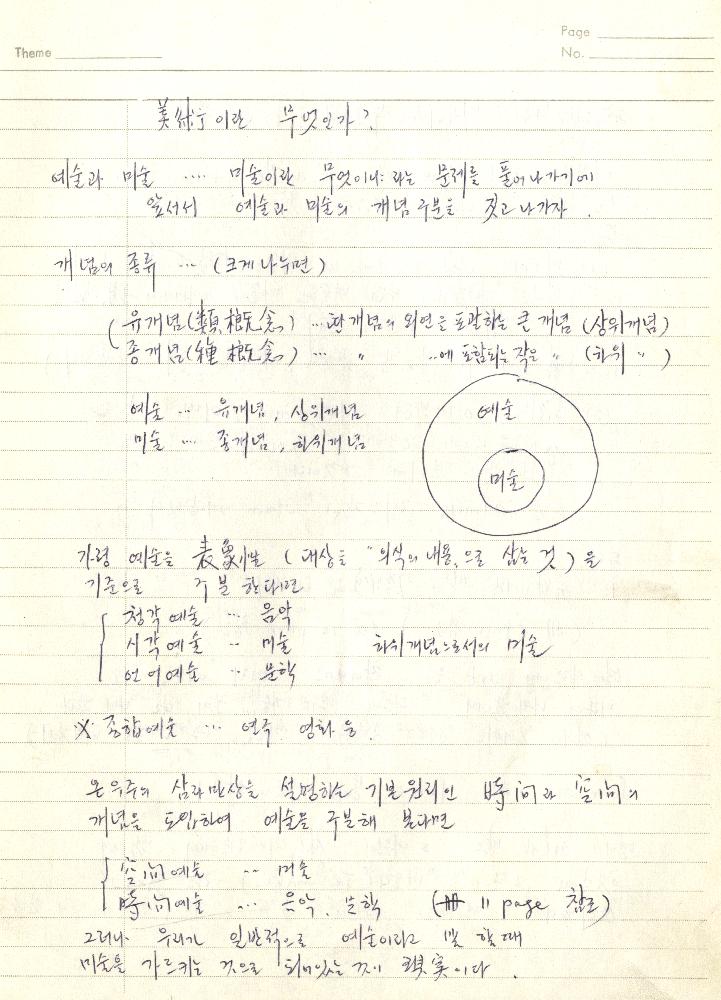 Page
Theme
No.
美術이란 무엇인가?
예술과 미술 .... 미술이란 무엇이냐 라는 문제를 풀어나가기에
앞서서 예술과 미술의 개념 구분을 짓고 나가자.
개념의 종류 ... (크게 나누면)
유개념(類概念) ... 한 개념의 외연을 포괄하는 큰 개념 (상위개념)
종개념(種概念) ... 〃 ...에 포함되는 작은 〃 (하위 〃)
예술 ... 유개념, 상위개념
미술 ... 종개념, 하위개념
예술
미술
가령 예술을 表象性 (대상을 "의식의 내용"으로 삼는 것)을
기준으로 구분한다면
청각예술 ... 음악
시각예술 .. 미술 하위개념으로서의 미술
언어예술 .. 문학
※ 종합예술 ... 연극 영화 등.
온우주의 삼라만상을 설명하는 기본원리인 時間과 空間의
개념을 도입하여 예술을 구분해 본다면
空间예술 .. 미술
時间예술 ... 음악, 문학 ( 11 page 참조)
그러나 우리가 일반적으로 예술이라고 말 할때
미술을 가르키는 것으로 되어있는 것이 現実이다.